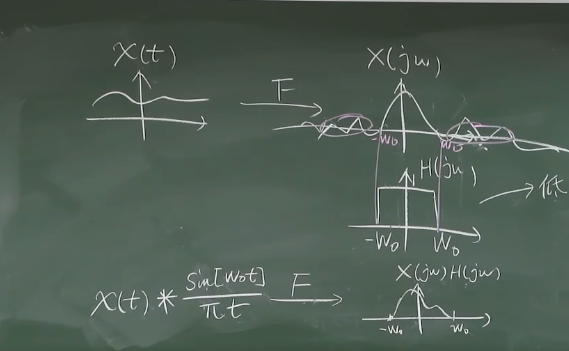 X(t)
X(jw)
F
-W0
W0
H(jw)
低
-W0 W0
X(t) * sin[W0t] / πt F
X(jw)H(jw)
-W0 W0